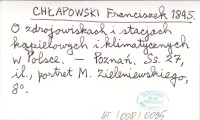 CHŁAPOWSKI Franciszek 1895.
O zdrojowiskach i stacjach
kąpielowych i klimatycznych
w Polsce. — Poznań. Ss. 27,
il., portret M. Zieleniewskiego,
8°.
GT / 008 / 0085